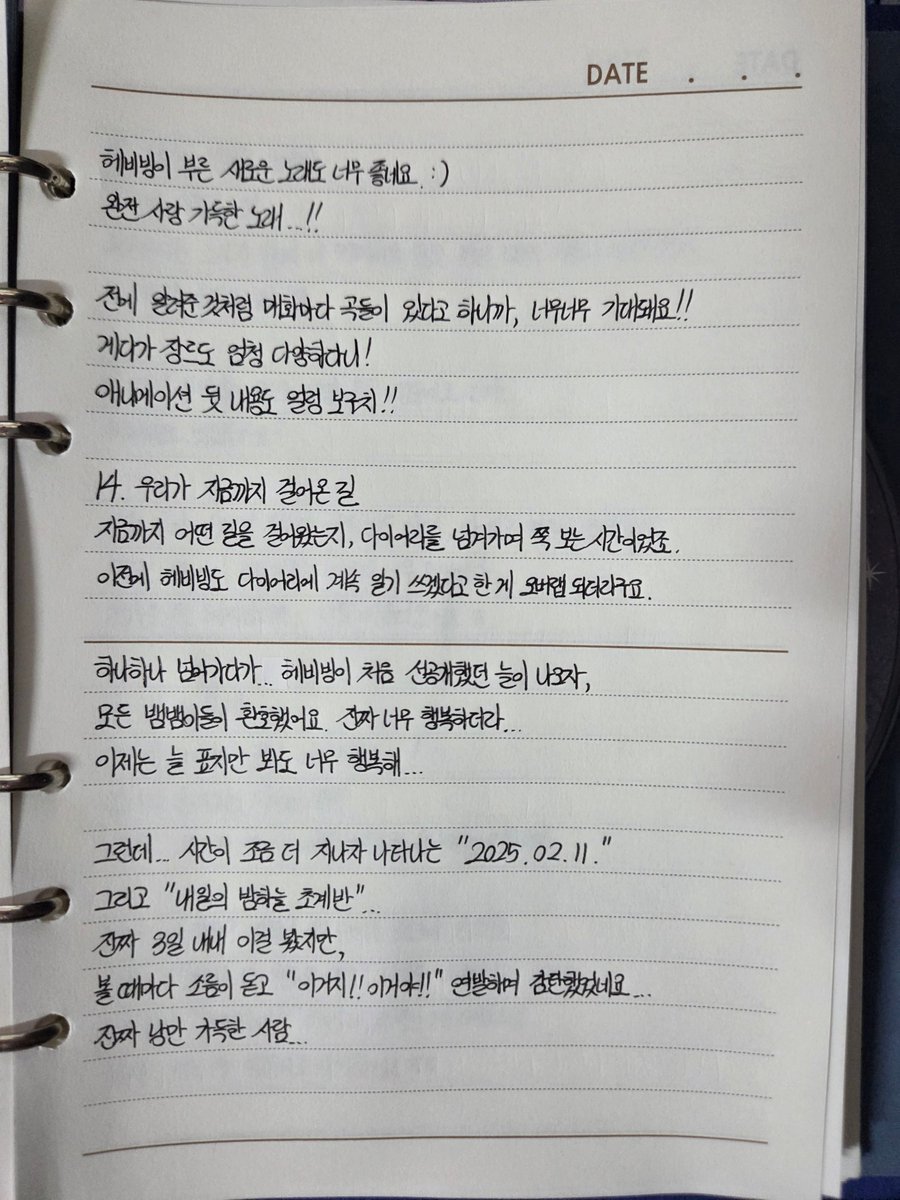 DATE . . .
헤비빙이 부른 새로운 노래도 너무 좋네요. :)
완전 사랑 가득한 노래...!!
전에 알려준 것처럼 매화마다 곡들이 있다고 하니까, 너무너무 기대돼요!!
게다가 장르도 엄청 다양하다니!
애니메이션 뒷 내용도 얼렁 보구치!!
14. 우리가 지금까지 걸어온 길
지금까지 어떤 길을 걸어왔는지, 다이어리를 넘겨가며 쭉 보는 시간이었죠.
이전에 헤비빙도 다이어리에 계속 일기 쓰겠다고 한 게 오버랩 되더라구요.
하나하나 넘어가다가... 헤비빙이 처음 선공개했던 늘이 나오자,
모든 뱀뱀이들이 환호했어요. 진짜 너무 행복하더라...
이제는 늘 표지만 봐도 너무 행복해...
그런데... 시간이 조금 더 지나자 나타나는 "2025.02.11."
그리고 "내일의 밤하늘 초계반"...
진짜 3일 내내 이걸 봤지만,
볼 때마다 소름이 돋고 "이거지!! 이거야!!" 연발하며 감탄했었네요...
진짜 낭만 가득한 사람...